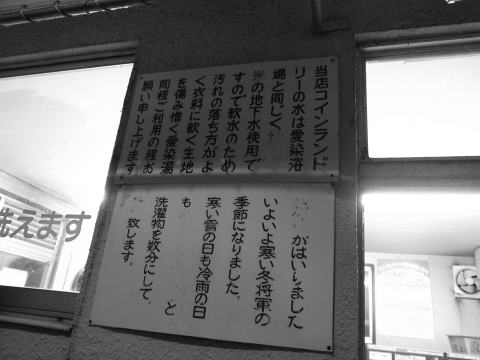 当店コインランド
リーの水は愛染浴
場と同じく、
米の地下水使用で
すので軟水のため
汚れの落ち方がよ
く衣料に軟く生地
を傷み憎く愛染湯
同様ご利用の程お
願い申し上げます
がはいりました
いよいよ寒い冬将軍の
季節になりました。
寒い雪の日も冷雨の日
も と
洗濯物を数分にして、
致します。
洗えます